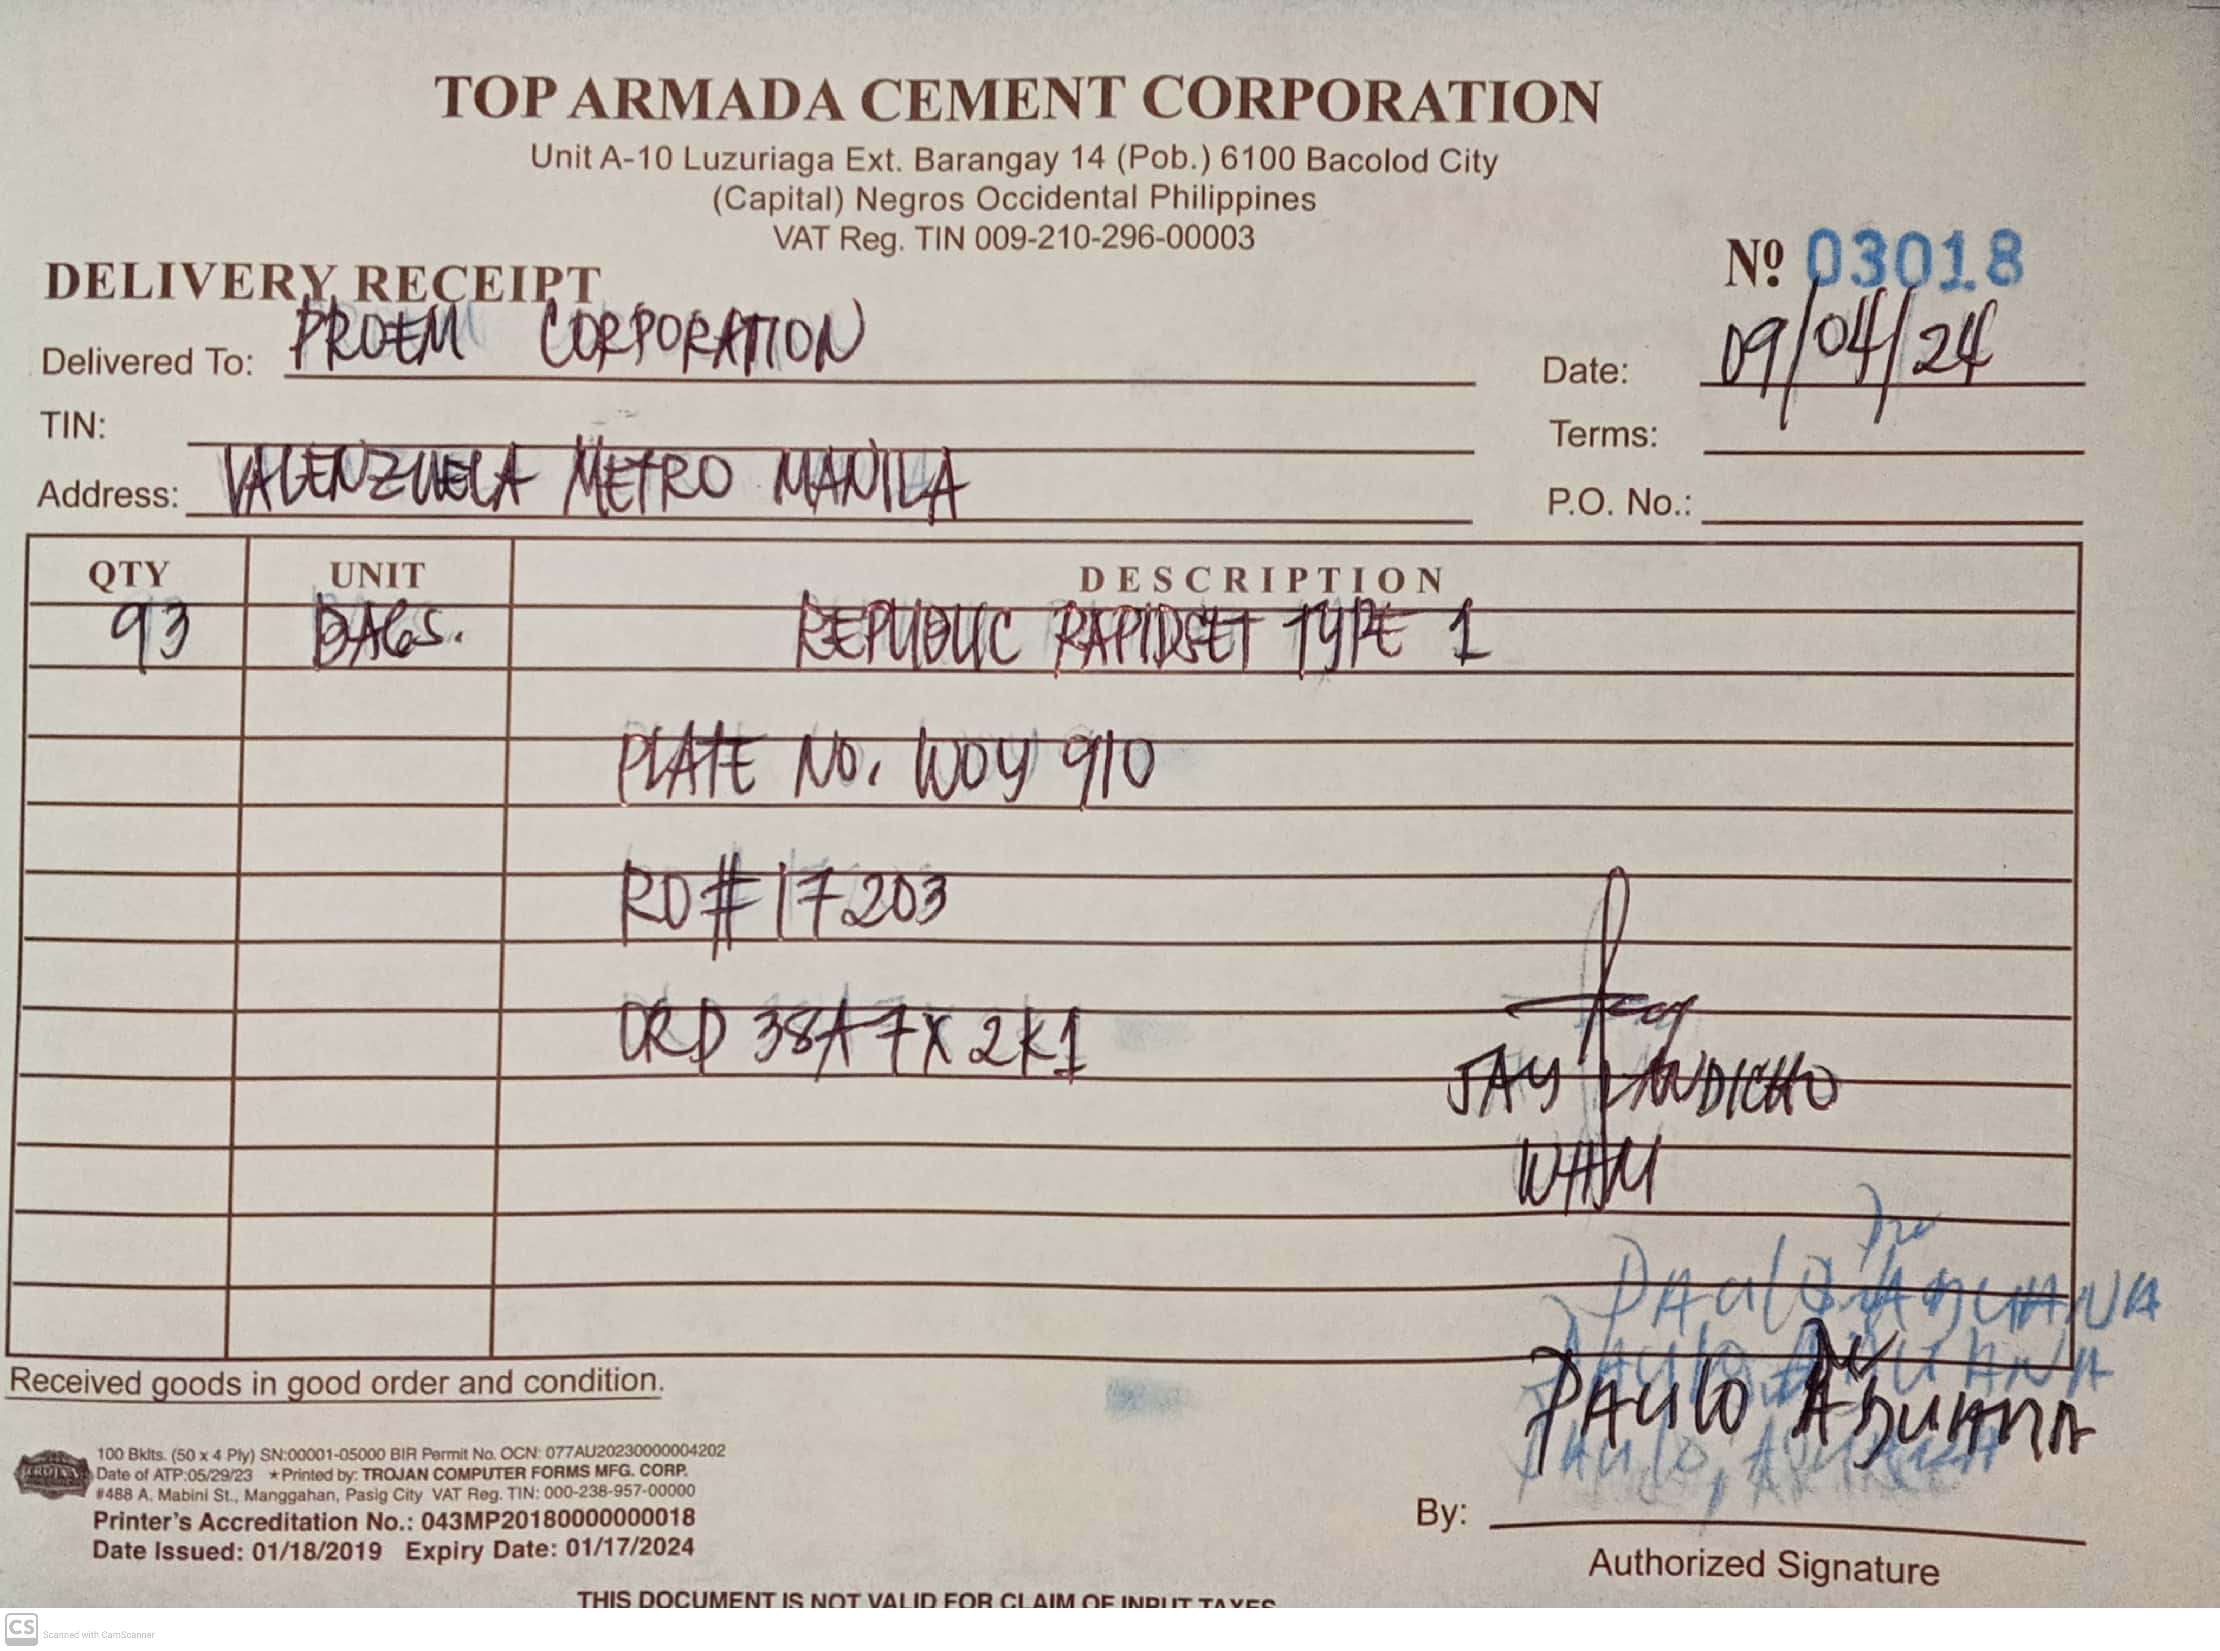 TOP ARMADA CEMENT CORPORATION
Unit A-10 Luzuriaga Ext. Barangay 14 (Pob.) 6100 Bacolod City
(Capital) Negros Occidental Philippines
VAT Reg. TIN 009-210-296-00003
DELIVERY RECEIPT
Nº 03018
Delivered To: PROEM CORPORATION
Date: 09/04/24
TIN:
Terms:
Address: VALENZUELA METRO MANILA
P.O. No.:
QTY UNIT DESCRIPTION
93 BAGS. REPUBLIC RAPIDSET TYPE 1
PLATE NO. WOY 910
RO# 17203
ORD 38A7X2K1
JAY LANDICHO
WHM
PAULO ABUANA
PAULO ABUANA
PAULO ABUANA
Received goods in good order and condition.
100 Bklts. (50 x 4 Ply) SN:00001-05000 BIR Permit No. OCN: 077AU20230000004202
Date of ATP:05/29/23 ★Printed by: TROJAN COMPUTER FORMS MFG. CORP.
#488 A. Mabini St., Manggahan, Pasig City VAT Reg. TIN: 000-238-957-00000
Printer's Accreditation No.: 043MP20180000000018
Date Issued: 01/18/2019 Expiry Date: 01/17/2024
By:
Authorized Signature
THIS DOCUMENT IS NOT VALID FOR CLAIM OF INPUT TAXES
CS Scanned with CamScanner